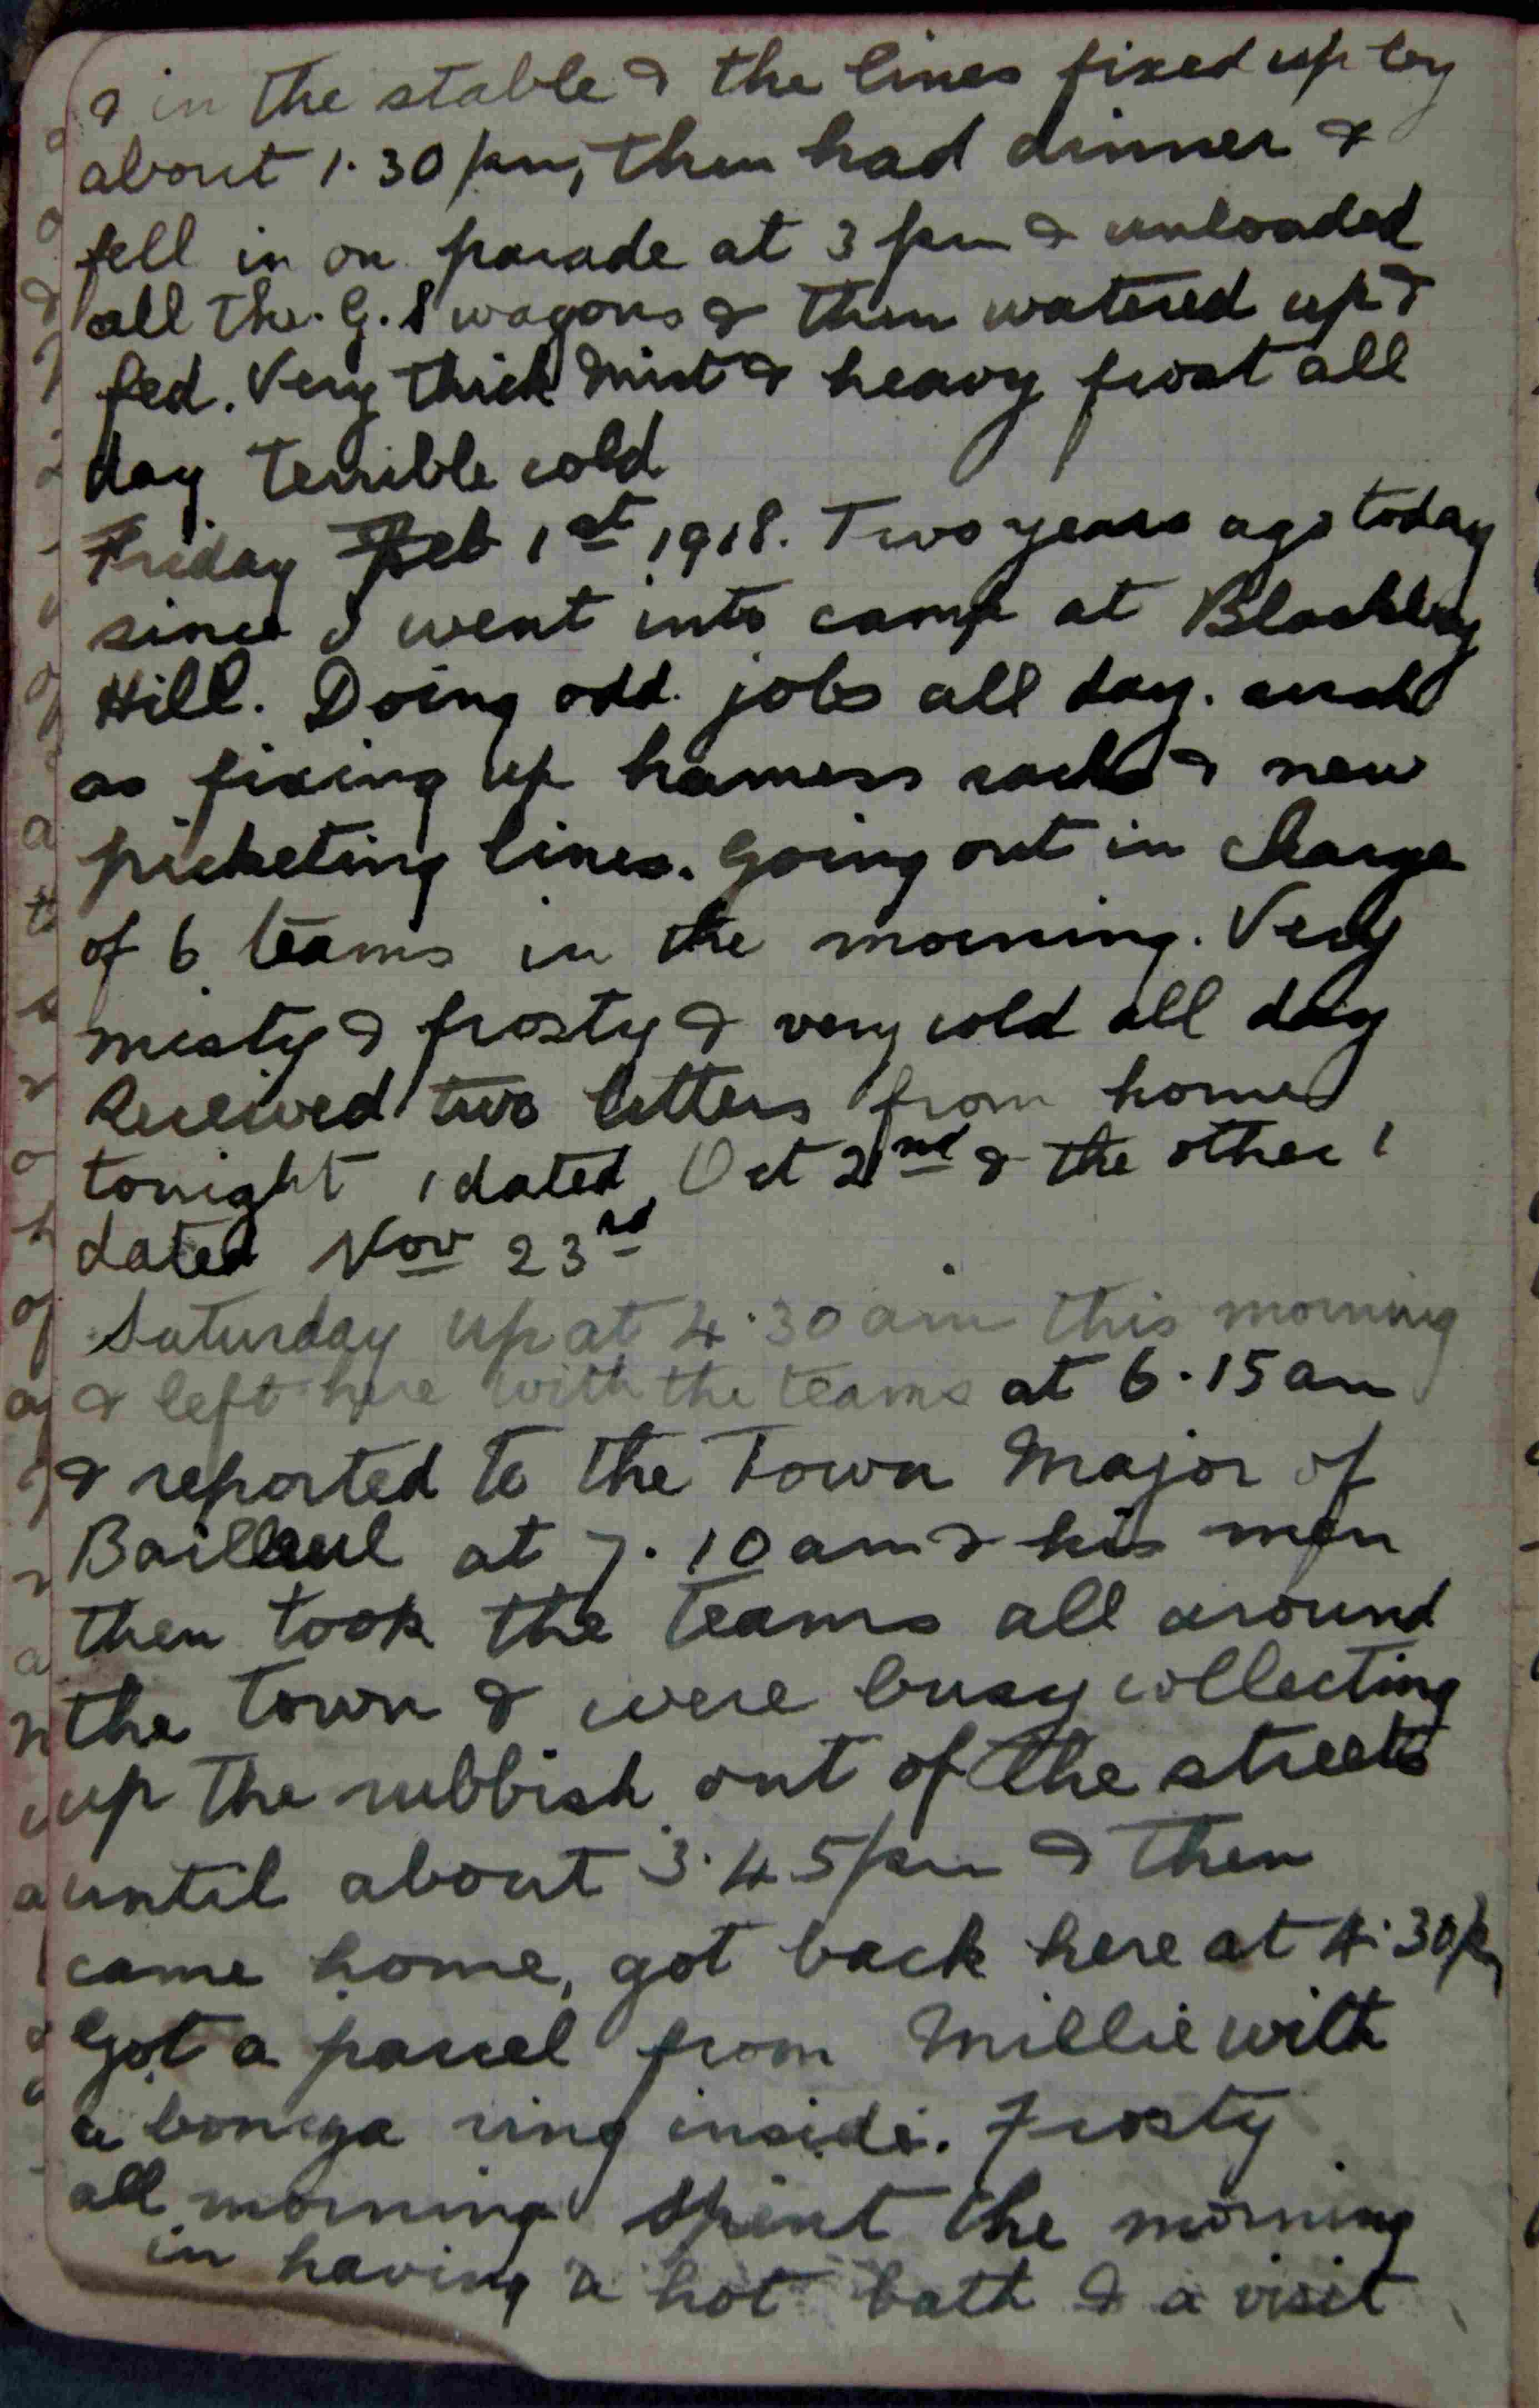 & in the stable & the lines fixed up by
about 1.30 pm, then had dinner &
fell in on parade at 3 pm & unloaded
all the G.S wagons & then watered up &
fed. Very thick mist & heavy frost all
day terrible cold
Friday Feb 1st 1918. Two years ago today
since I went into camp at Blackboy
Hill. Doing odd jobs all day. such
as fixing up harness racks & new
picketing lines. Going out in charge
of 6 teams in the morning. Very
misty & frosty & very cold all day
Received two letters from home
tonight 1 dated Oct 2nd & the other 1
dated Nov 23rd
Saturday up at 4.30 am this morning
& left here with the teams at 6.15 am
& reported to the Town Major of
Bailleul at 7.10 am & his men
then took the teams all around
the town & were busy collecting
up the rubbish out of the streets
until about 3.45 pm & then
came home, got back here at 4.30 pm
Got a parcel from Millie with
a bonzga ring inside. Frosty
all morning Spent the morning
in having a hot bath & a visit